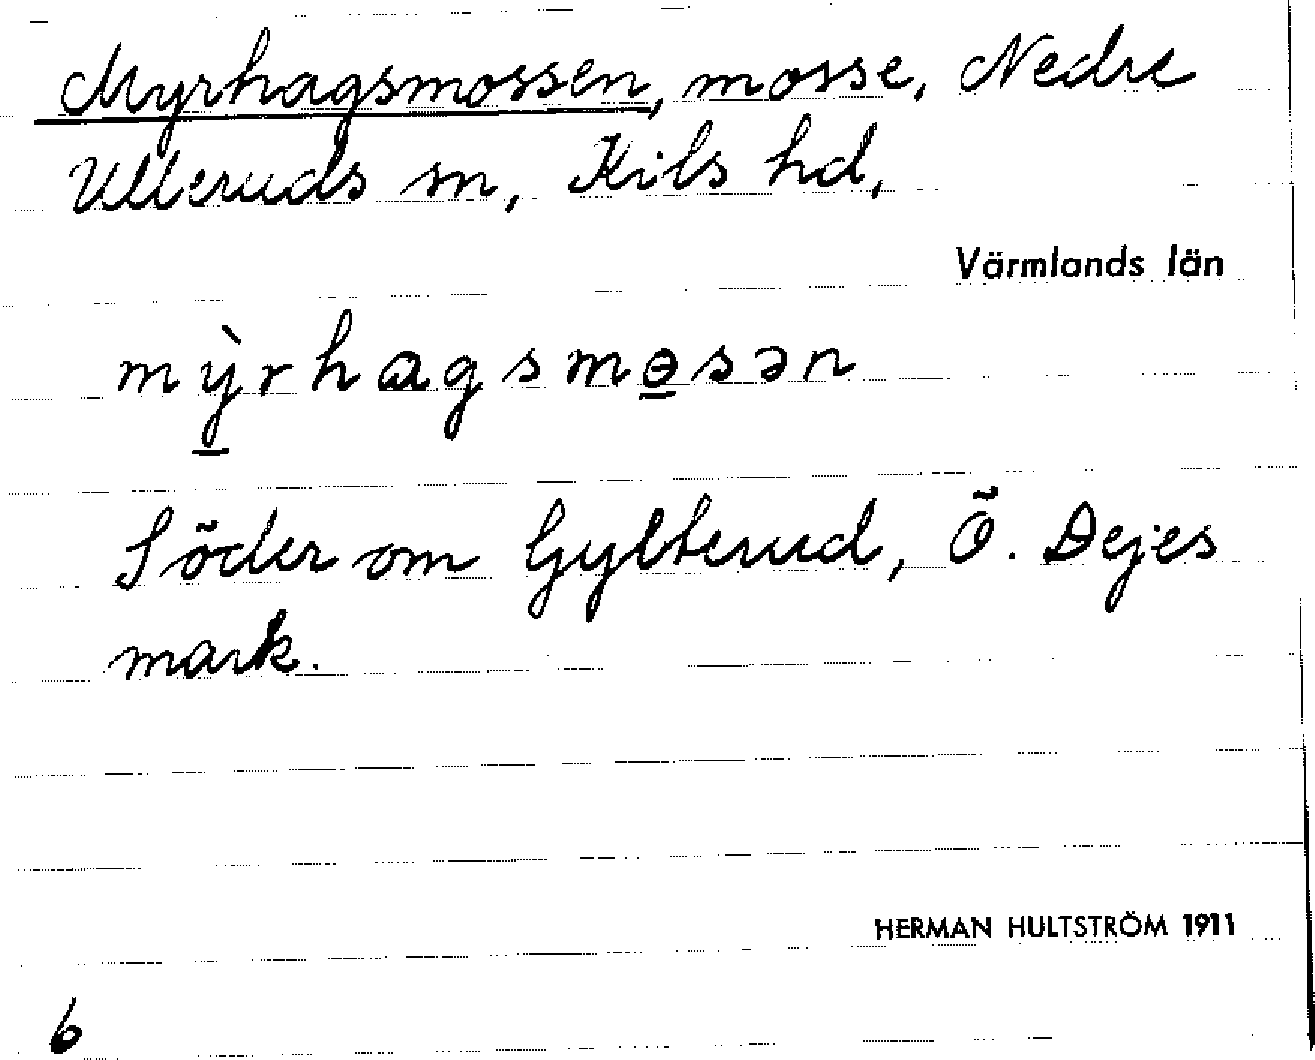 Myrhagsmossen, mosse, Nedre
Ulleruds sn, Kils hd,
Värmlands län
mỳ̱rhagsmɵ̱sən
Söder om Gylterud, Ö. Dejes
mark.
HERMAN HULTSTRÖM 1911
6